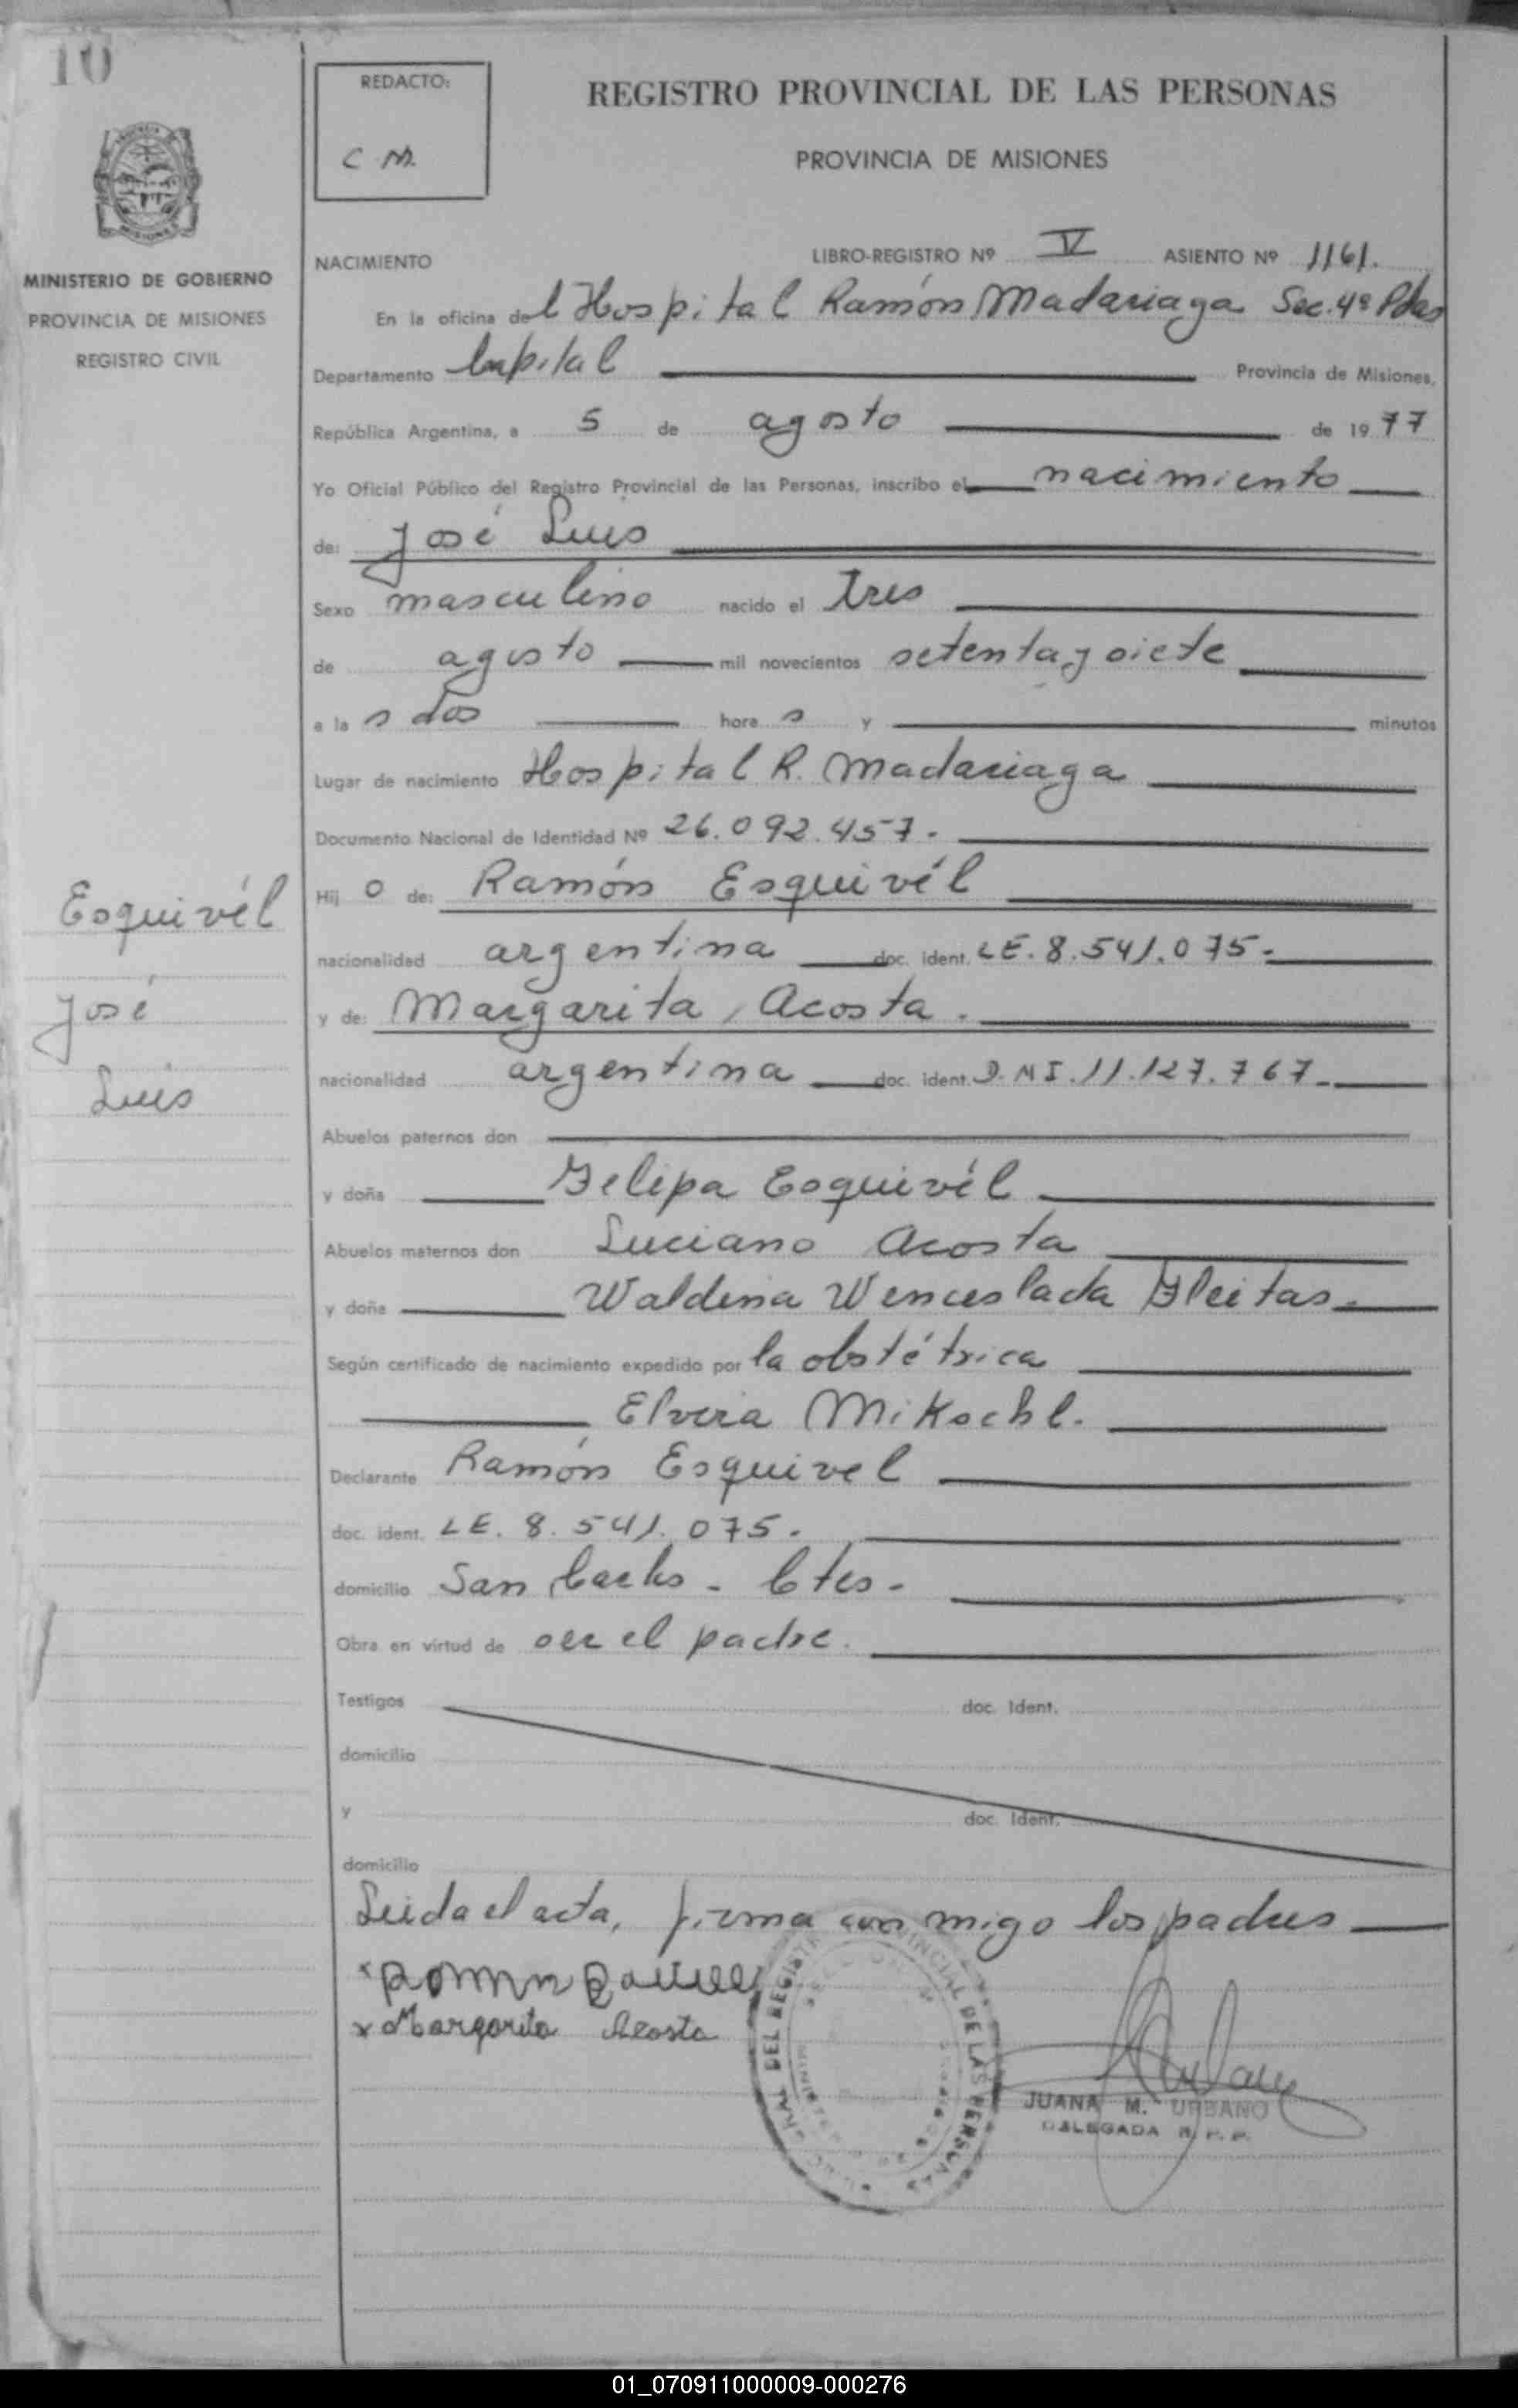 10
REDACTO:
C. M.
REGISTRO PROVINCIAL DE LAS PERSONAS
PROVINCIA DE MISIONES
MINISTERIO DE GOBIERNO
PROVINCIA DE MISIONES
REGISTRO CIVIL
NACIMIENTO LIBRO-REGISTRO Nº V ASIENTO Nº 1161.
En la oficina del Hospital Ramón Madariaga Sec. 4ª Pdas
Departamento Capital Provincia de Misiones,
República Argentina, a 5 de agosto de 1977
Yo Oficial Público del Registro Provincial de las Personas, inscribo el nacimiento
de: José Luis
Sexo masculino nacido el tres
de agosto mil novecientos setenta y siete
a las dos horas y minutos
Lugar de nacimiento Hospital R. Madariaga
Documento Nacional de Identidad Nº 26.092.457.
Esquivél
José
Luis
Hijo de: Ramón Esquivél
nacionalidad argentina doc. ident. LE. 8.541.075.
y de: Margarita, Acosta.
nacionalidad argentina doc. ident. D.N.I. 11.127.767.
Abuelos paternos don
y doña Felipa Esquivél
Abuelos maternos don Luciano Acosta
y doña Waldina Wenceslada Fleitas.
Según certificado de nacimiento expedido por la obstétrica
Elvira Mikochl.
Declarante Ramón Esquivel
doc. ident. LE. 8.541.075.
domicilio San Carlos - Ctes.
Obra en virtud de ser el padre.
Testigos doc. Ident.
domicilio
y doc. Ident.
domicilio
Leida el acta, firma con migo los padres
x Margarita Acosta
DEL REGISTRO PROVINCIAL DE LAS PERSONAS
JUANA M. URBANO
DELEGADA R. P. P.
01_070911000009-000276